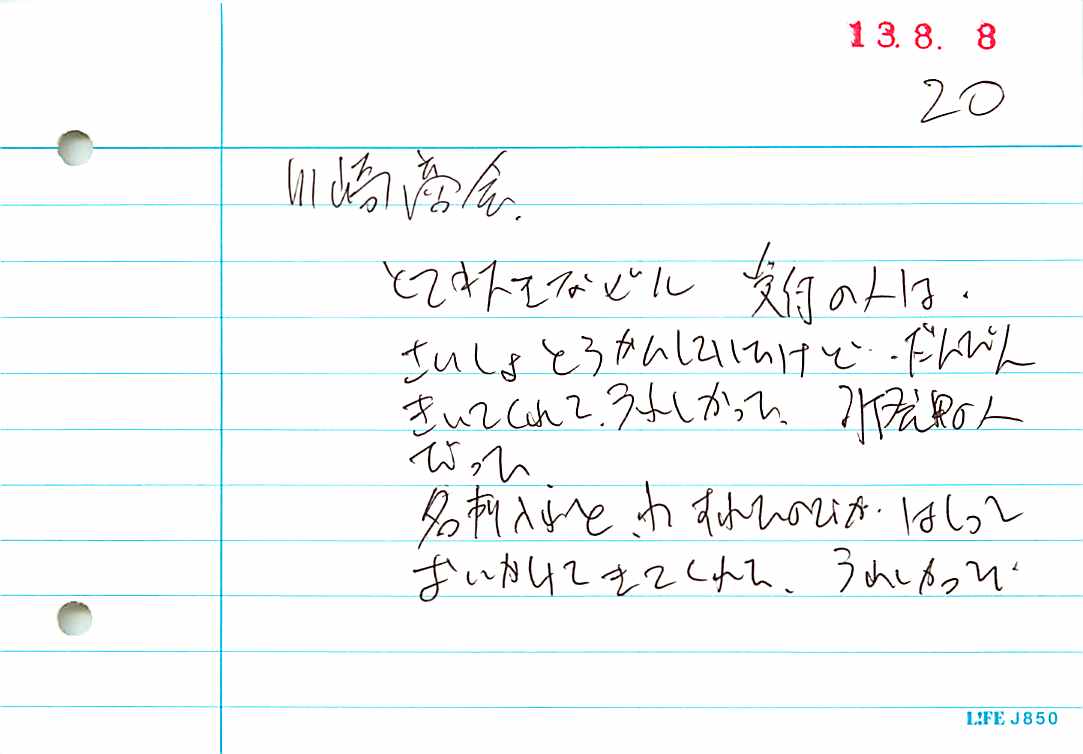 13. 8. 8
20
川崎商会.
とても大きなビル 受付の人は.
さいしょ とろかんしていたけど・・だんだん
きいてくれて.うれしかった、 の人
だった
名刺入れを、わすれたのですが・はしって
おいかけてきてくれた、うれしかった・
L!FE J850